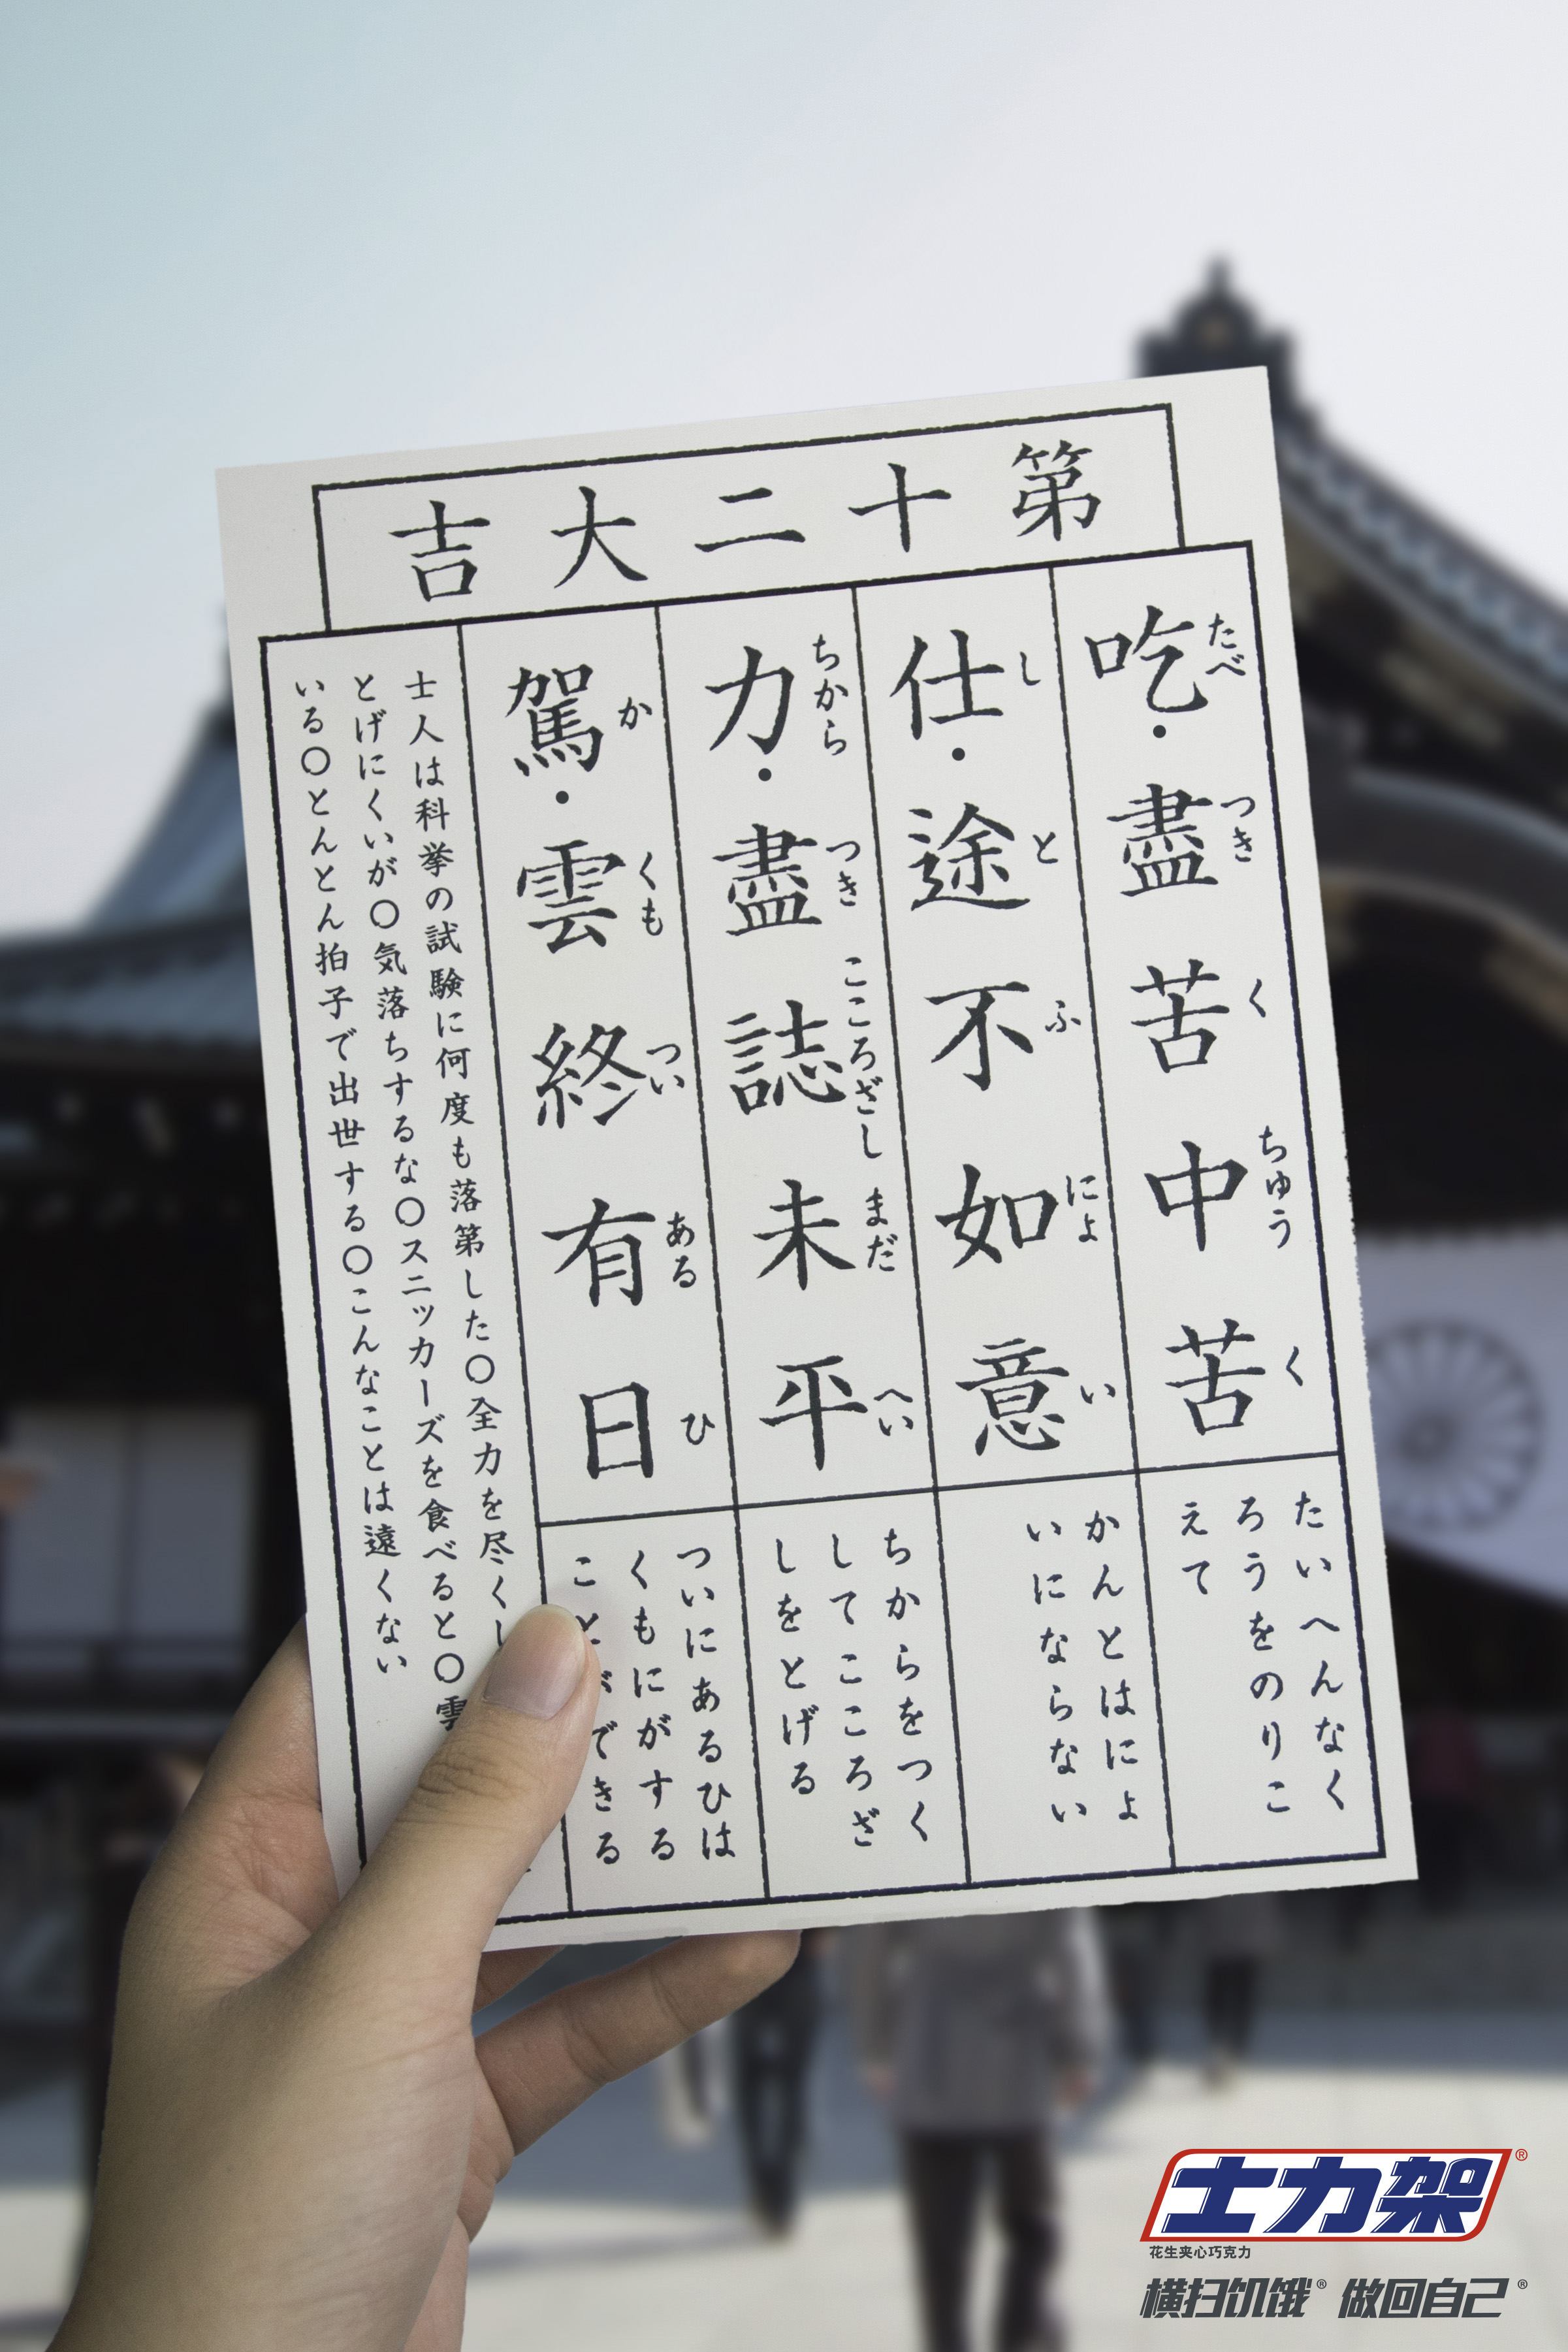 第十二大吉
吃・盡苦中苦
たべ つき く ちゅう く
たいへんなく
ろうをのりこ
えて
仕・途不如意
し と ふ にょ い
かんとはにょ
いにならない
力・盡誌未平
ちから つき こころざし まだ へい
ちからをつく
してこころざ
しをとげる
駕・雲終有日
か くも つい ある ひ
ついにあるひは
くもにがする
こと できる
士人は科挙の試験に何度も落第した〇全力を尽くし
とげにくいが〇気落ちするな〇スニッカーズを食べると〇雲
いる〇とんとん拍子で出世する〇こんなことは遠くない
士力架®
花生夹心巧克力
横扫饥饿® 做回自己®